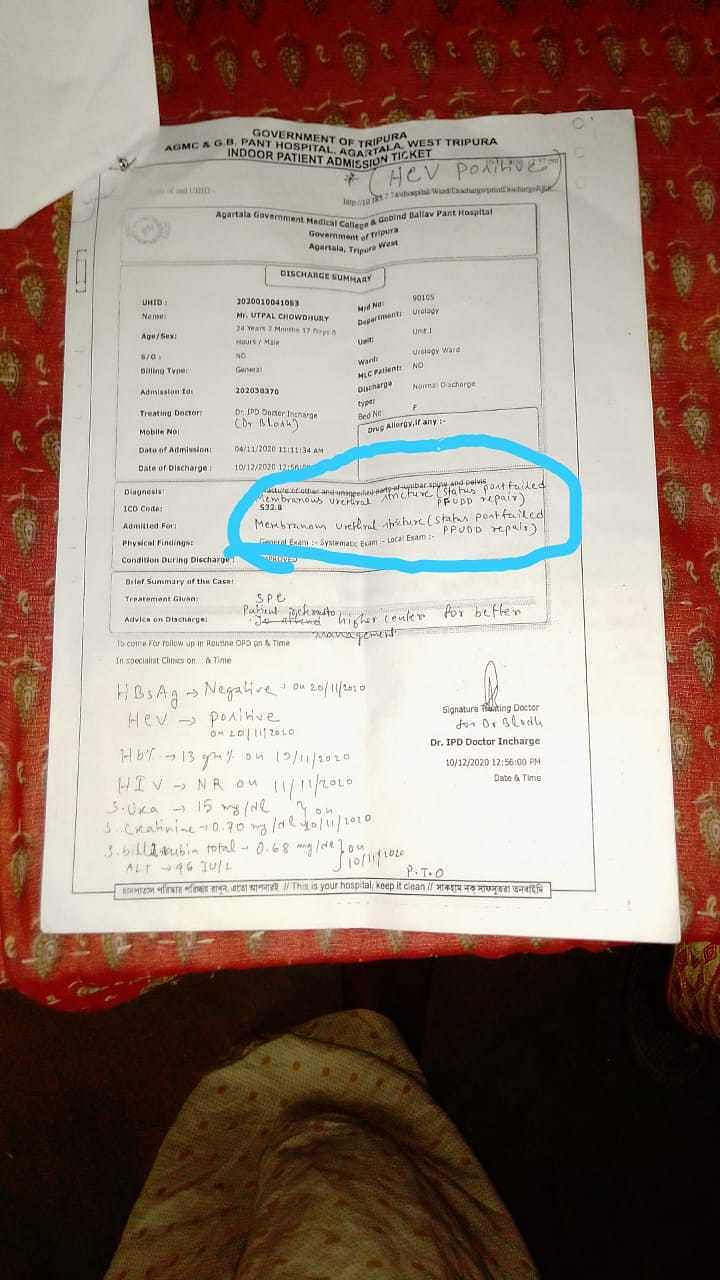 GOVERNMENT OF TRIPURA
AGMC & G.B. PANT HOSPITAL, AGARTALA, WEST TRIPURA
INDOOR PATIENT ADMISSION TICKET
* (HCV Positive)
and UHID
Agartala Government Medical College & Gobind Ballav Pant Hospital
Government of Tripura
Agartala, Tripura West
DISCHARGE SUMMARY
UHID : 2020010041083 Mrd No: 90105
Name: Mr. UTPAL CHOWDHURY Department: Urology
Age/Sex: 24 Years 2 Months 17 Days 8 Hours / Male Unit: Unit.I
S/O : NO Ward: Urology Ward
Billing Type: General MLC Patient: NO
Admission Id: 202038370 Discharge type: Normal Discharge
Treating Doctor: Dr. IPD Doctor Incharge Bed No F
(Dr Blodh)
Mobile No: Drug Allergy,if any :-
Date of Admission: 04/11/2020 11:11:34 AM
Date of Discharge : 10/12/2020 12:56:00
Diagnosis: Fracture of other and unspecified parts of lumbar spine and pelvis
Membranous urethral stricture (status postfailed PFUDD repair)
ICD Code: S32.8
Admitted For: Membranous urethral stricture (status postfailed PFUDD repair)
Physical Findings: General Exam :- Systematic Exam :- Local Exam :-
Condition During Discharge :
Brief Summary of the Case:
Treatement Given: SPC
Advice on Discharge: Patient higher center for better management
To come For follow up in Routine OPD on & Time
In specialist Clinics on & Time
HBsAg → Negative on 20/11/2020
HCV → Positive
on 20/11/2020
Hb% → 13 gm% on 19/11/2020
HIV → NR on 11/11/2020
S. Urea → 15 mg/dl } on
S. Creatinine → 0.70 mg/dl } 10/11/2020
S. bilirubin total → 0.68 mg/dl } on
ALT → 46 IU/L } 10/11/2020
Signature Treating Doctor
for Dr Blodh
Dr. IPD Doctor Incharge
10/12/2020 12:56:00 PM
Date & Time
P.T.O
// This is your hospital, keep it clean //